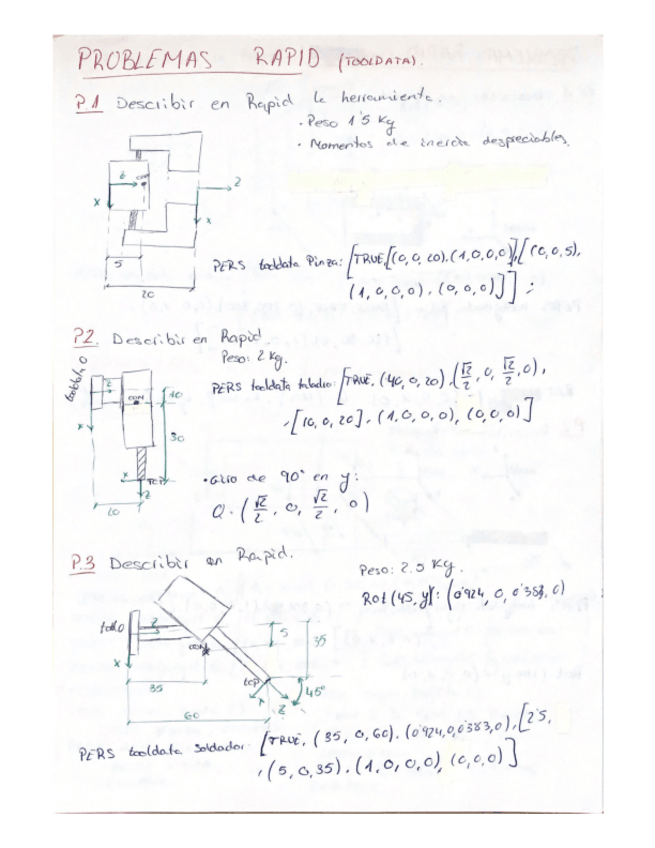 PROBLEMAS RAPID (TOOLDATA).
P.1 Describir en Rapid la herramienta.
· Peso 1'5 Kg
· Momentos de inercia despreciables.
z
COM
z
x
x
5
20
PERS tooldata Pinza: [TRUE,[(0,0,20),(1,0,0,0)],[(0,0,5),
(1,0,0,0),(0,0,0)]];
P2. Describir en Rapid
Peso: 2 Kg.
toolo
z
COM
10
x
30
x
TCP
z
20
PERS tooldata taladro: [TRUE, (40,0,20),(√2/2, 0, √2/2, 0),
,[10,0,20], (1,0,0,0), (0,0,0)]
· Giro de 90° en y:
Q · (√2/2, 0, √2/2, 0)
P.3 Describir en Rapid.
Peso: 2.5 Kg.
Rot(45,y): (0'924, 0, 0'383, 0)
z
5
35
COM
x
35
TCP
45°
z
60
PERS tooldata soldador: [TRUE, (35, 0, 60), (0'924,0,0'383,0), [2'5,
, (5,0,35), (1,0,0,0), (0,0,0)]